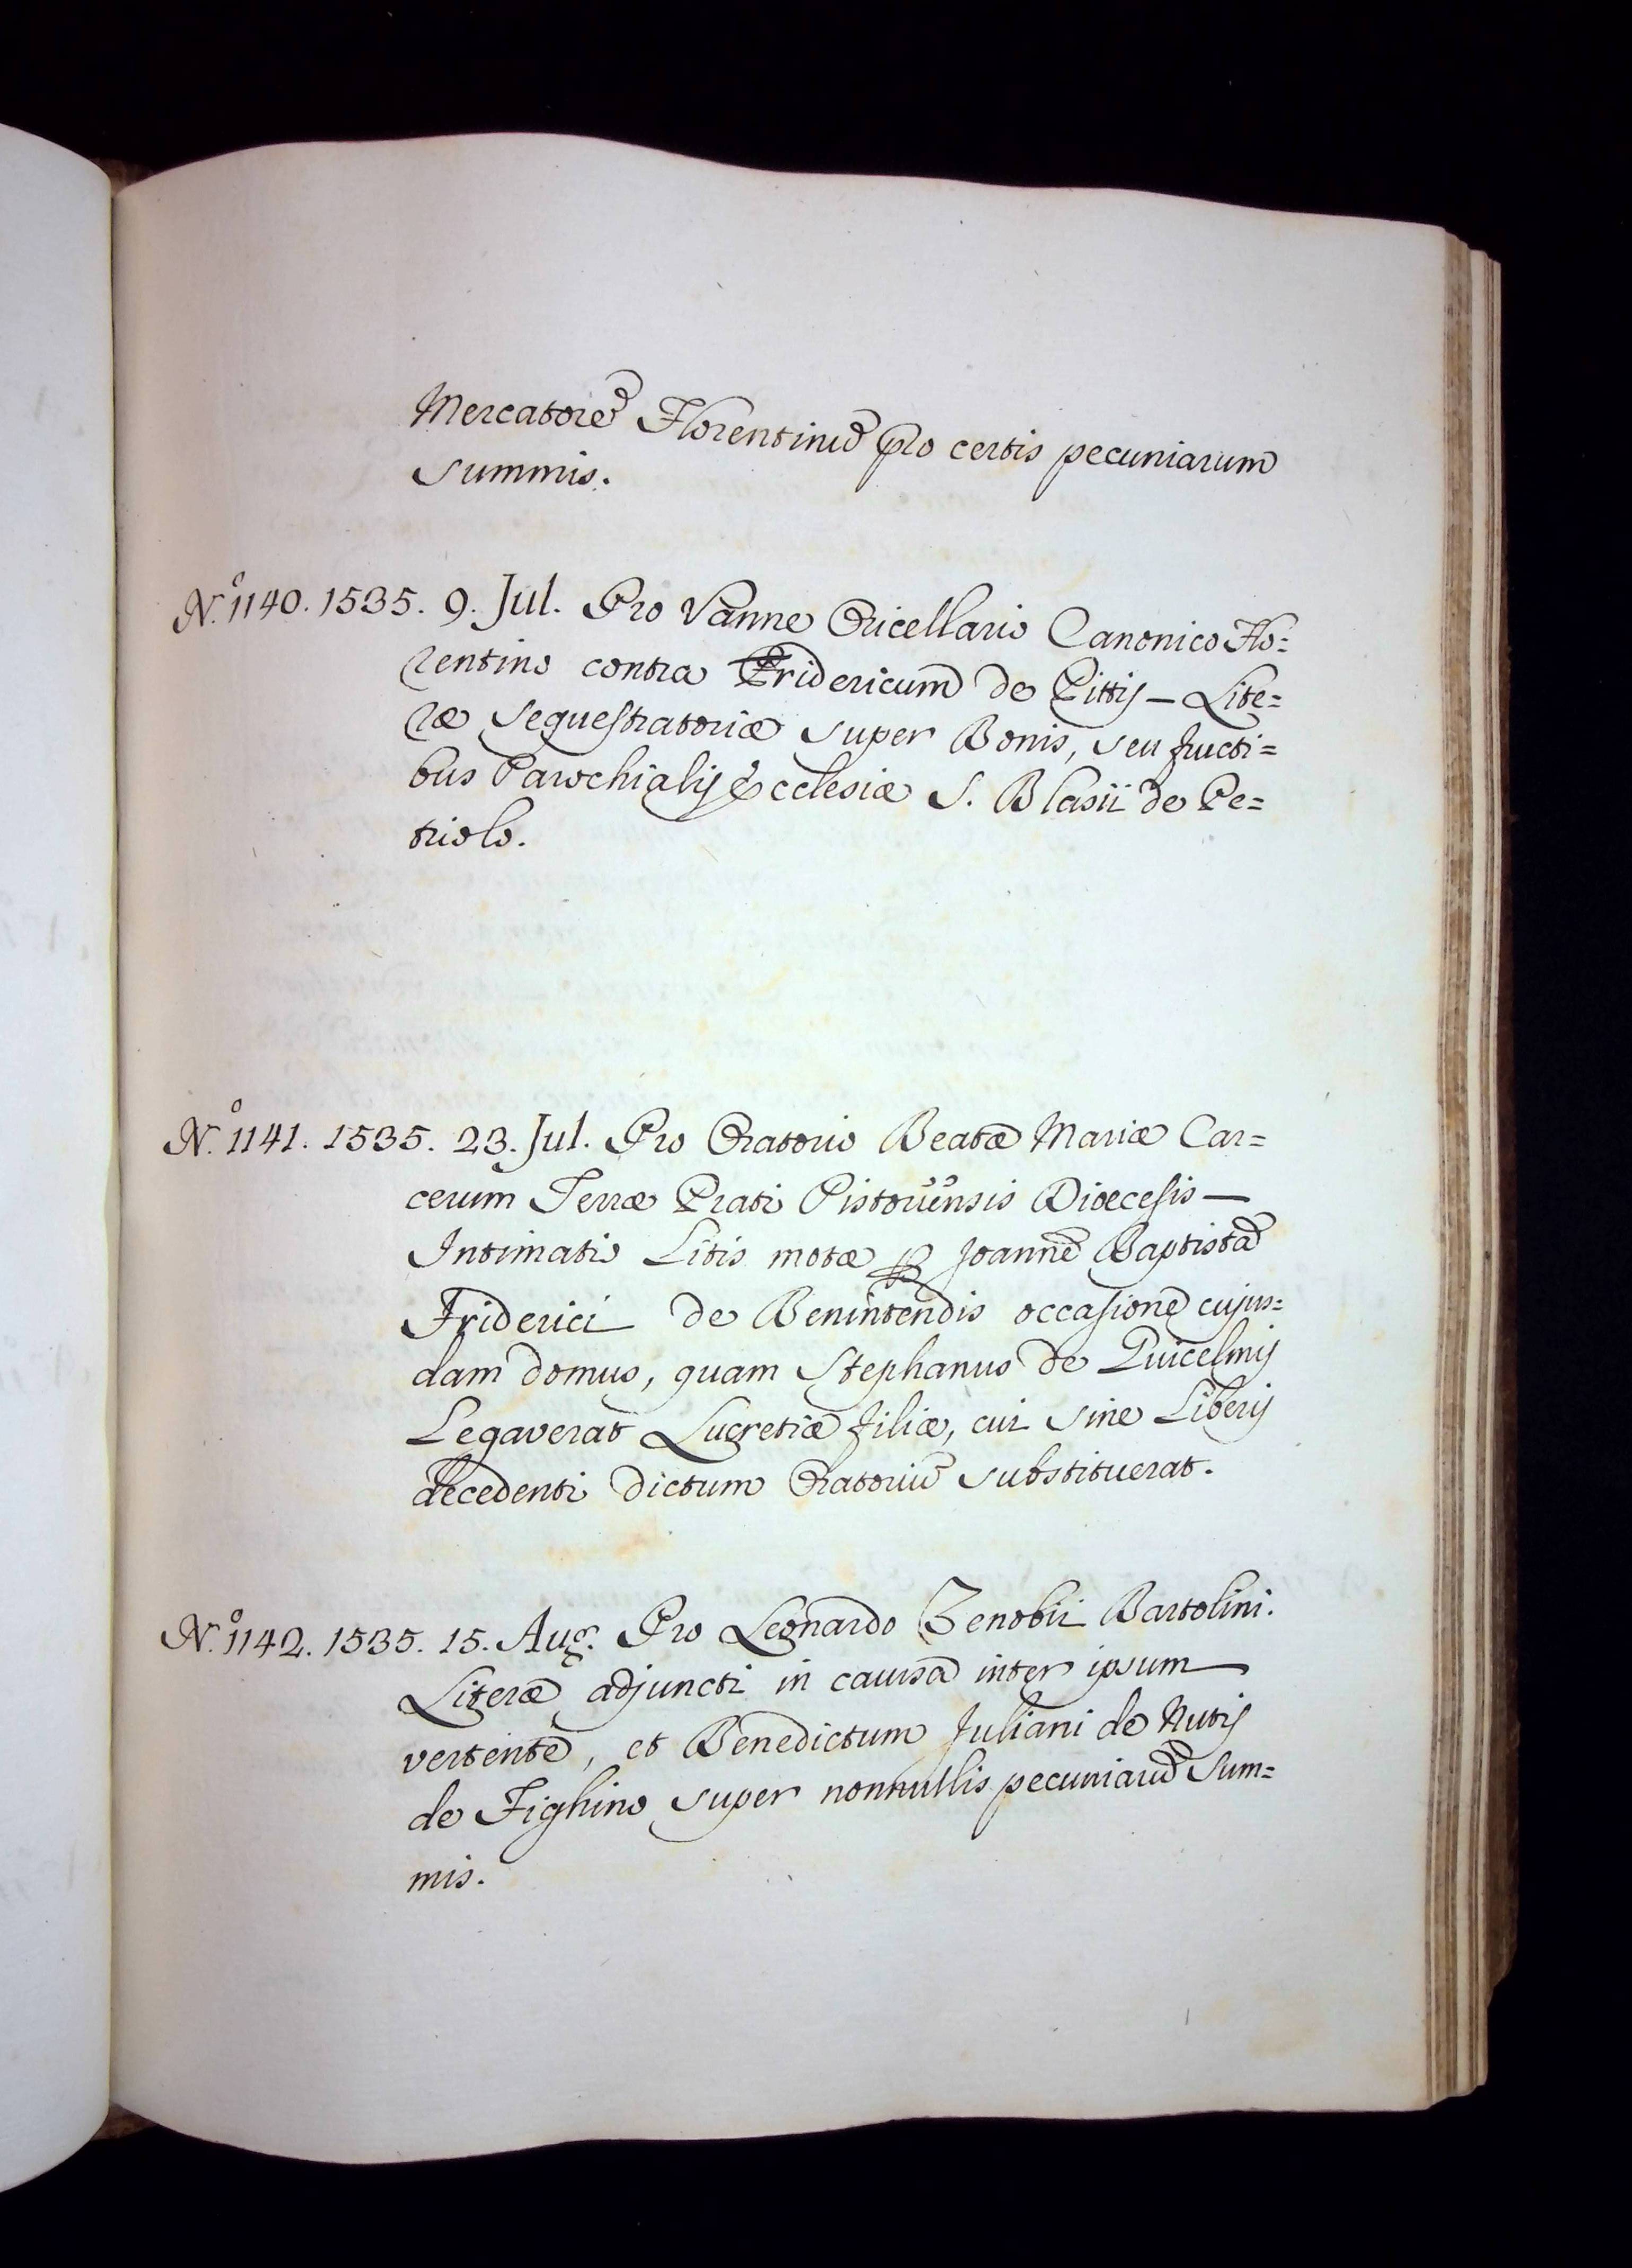 Mercatorē Florentinū pro certis pecuniarum
summis.
N.º 1140. 1535. 9. Jul. Pro Vanne Oricellario Canonico Flo=
rentino contra Fridericum de Pittij – Lite=
ræ sequestratoriæ super Bonis, seu fructi=
bus Parochialij Ecclesiæ S. Blasii de Pe=
triolo.
N.º 1141. 1535. 23. Jul. Pro Oratorio Beatæ Mariæ Car=
cerum Terræ Prati Pistoriensis Diœcesis –
Intimatio Litis motæ ꝑ Joannē Baptistā
Friderici de Benintendis occasione cujus=
dam domus, quam Stephanus de Guicelmij
Legaverat Lucretiæ filiæ, cui sine Liberij
decedenti dictum Oratoriū substituerat.
N.º 1142. 1535. 15. Aug. Pro Leonardo Zenobii Bartolini.
Literæ adjuncti in causa inter ipsum
vertente, et Benedictum Juliani de Nutij
de Fighino super nonnullis pecuniarū Sum=
mis.